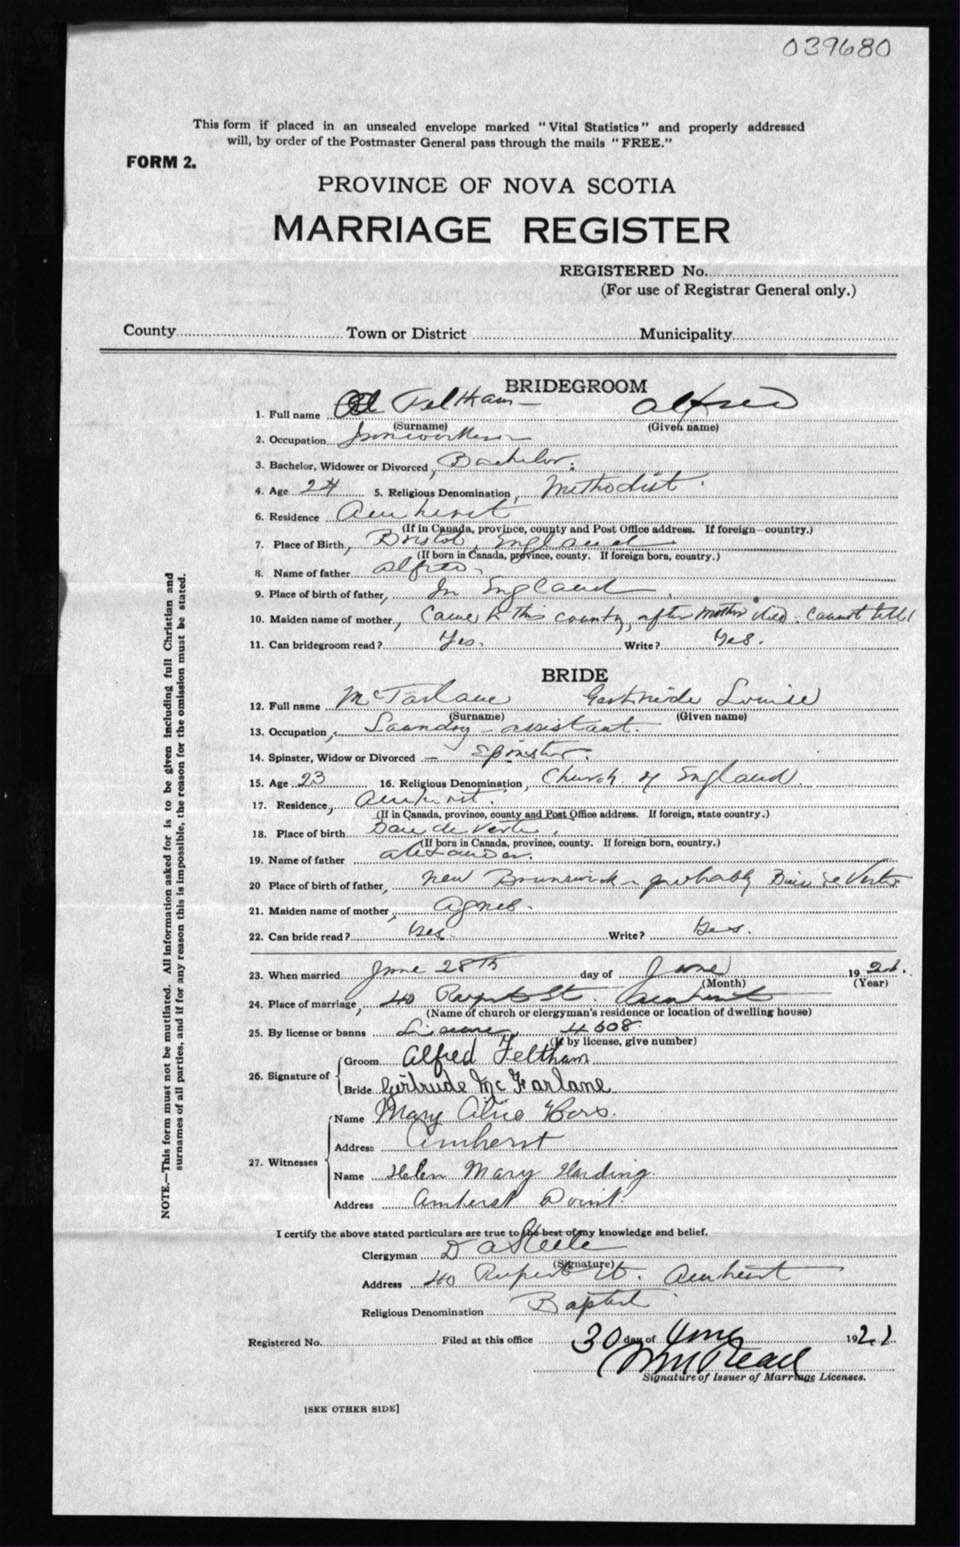 039680
This form if placed in an unsealed envelope marked "Vital Statistics" and properly addressed
will, by order of the Postmaster General pass through the mails "FREE."
FORM 2.
PROVINCE OF NOVA SCOTIA
MARRIAGE REGISTER
REGISTERED No.
(For use of Registrar General only.)
County Town or District Municipality
BRIDEGROOM
1. Full name Feltham Alfred
(Surname) (Given name)
2. Occupation Ironworker
3. Bachelor, Widower or Divorced, Bachelor.
4. Age 24 5. Religious Denomination, Methodist.
6. Residence Amherst
(If in Canada, province, county and Post Office address. If foreign—country.)
7. Place of Birth, Bristol, England
(If born in Canada, province, county. If foreign born, country.)
8. Name of father Alfred.
9. Place of birth of father, In England
10. Maiden name of mother, Came to this country, after mother died. Cannot tell
11. Can bridegroom read? Yes. Write? Yes.
BRIDE
12. Full name McFarlane Gertrude Louise
(Surname) (Given name)
13. Occupation, Laundry assistant.
14. Spinster, Widow or Divorced — Spinster.
15. Age 23 16. Religious Denomination, Church of England
17. Residence, Amherst.
(If in Canada, province, county and Post Office address. If foreign, state country.)
18. Place of birth Baie de Verte,
(If born in Canada, province, county. If foreign born, country.)
19. Name of father Alexander.
20 Place of birth of father, New Brunswick - probably Baie de Verte
21. Maiden name of mother, Agnes.
22. Can bride read? Yes. Write? Yes.
23. When married June 28th day of June 1921.
(Month) (Year)
24. Place of marriage, 40 Rupert St. Amherst
(Name of church or clergyman's residence or location of dwelling house)
25. By license or banns License, 4608
(If by license, give number)
26. Signature of Groom Alfred Feltham
Bride Gertrude McFarlane
27. Witnesses Name Mary
Address Amherst
Name Helen Mary Harding.
Address Amherst Point.
I certify the above stated particulars are true to the best of my knowledge and belief.
Clergyman D A Steele
(Signature)
Address 40 Rupert St. Amherst
Religious Denomination Baptist.
Registered No. Filed at this office 30 day of June 1921
Signature of Issuer of Marriage Licenses.
[SEE OTHER SIDE]
NOTE.—This form must not be mutilated. All information asked for is to be given including full Christian and
surnames of all parties, and if for any reason this is impossible, the reason for the omission must be stated.